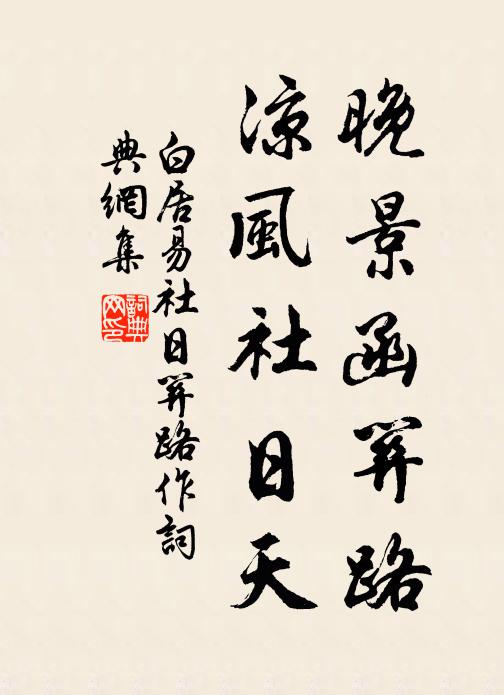 晚景函關路
涼風社日天
白居易社日關路作詞
典網集
詞典
网印